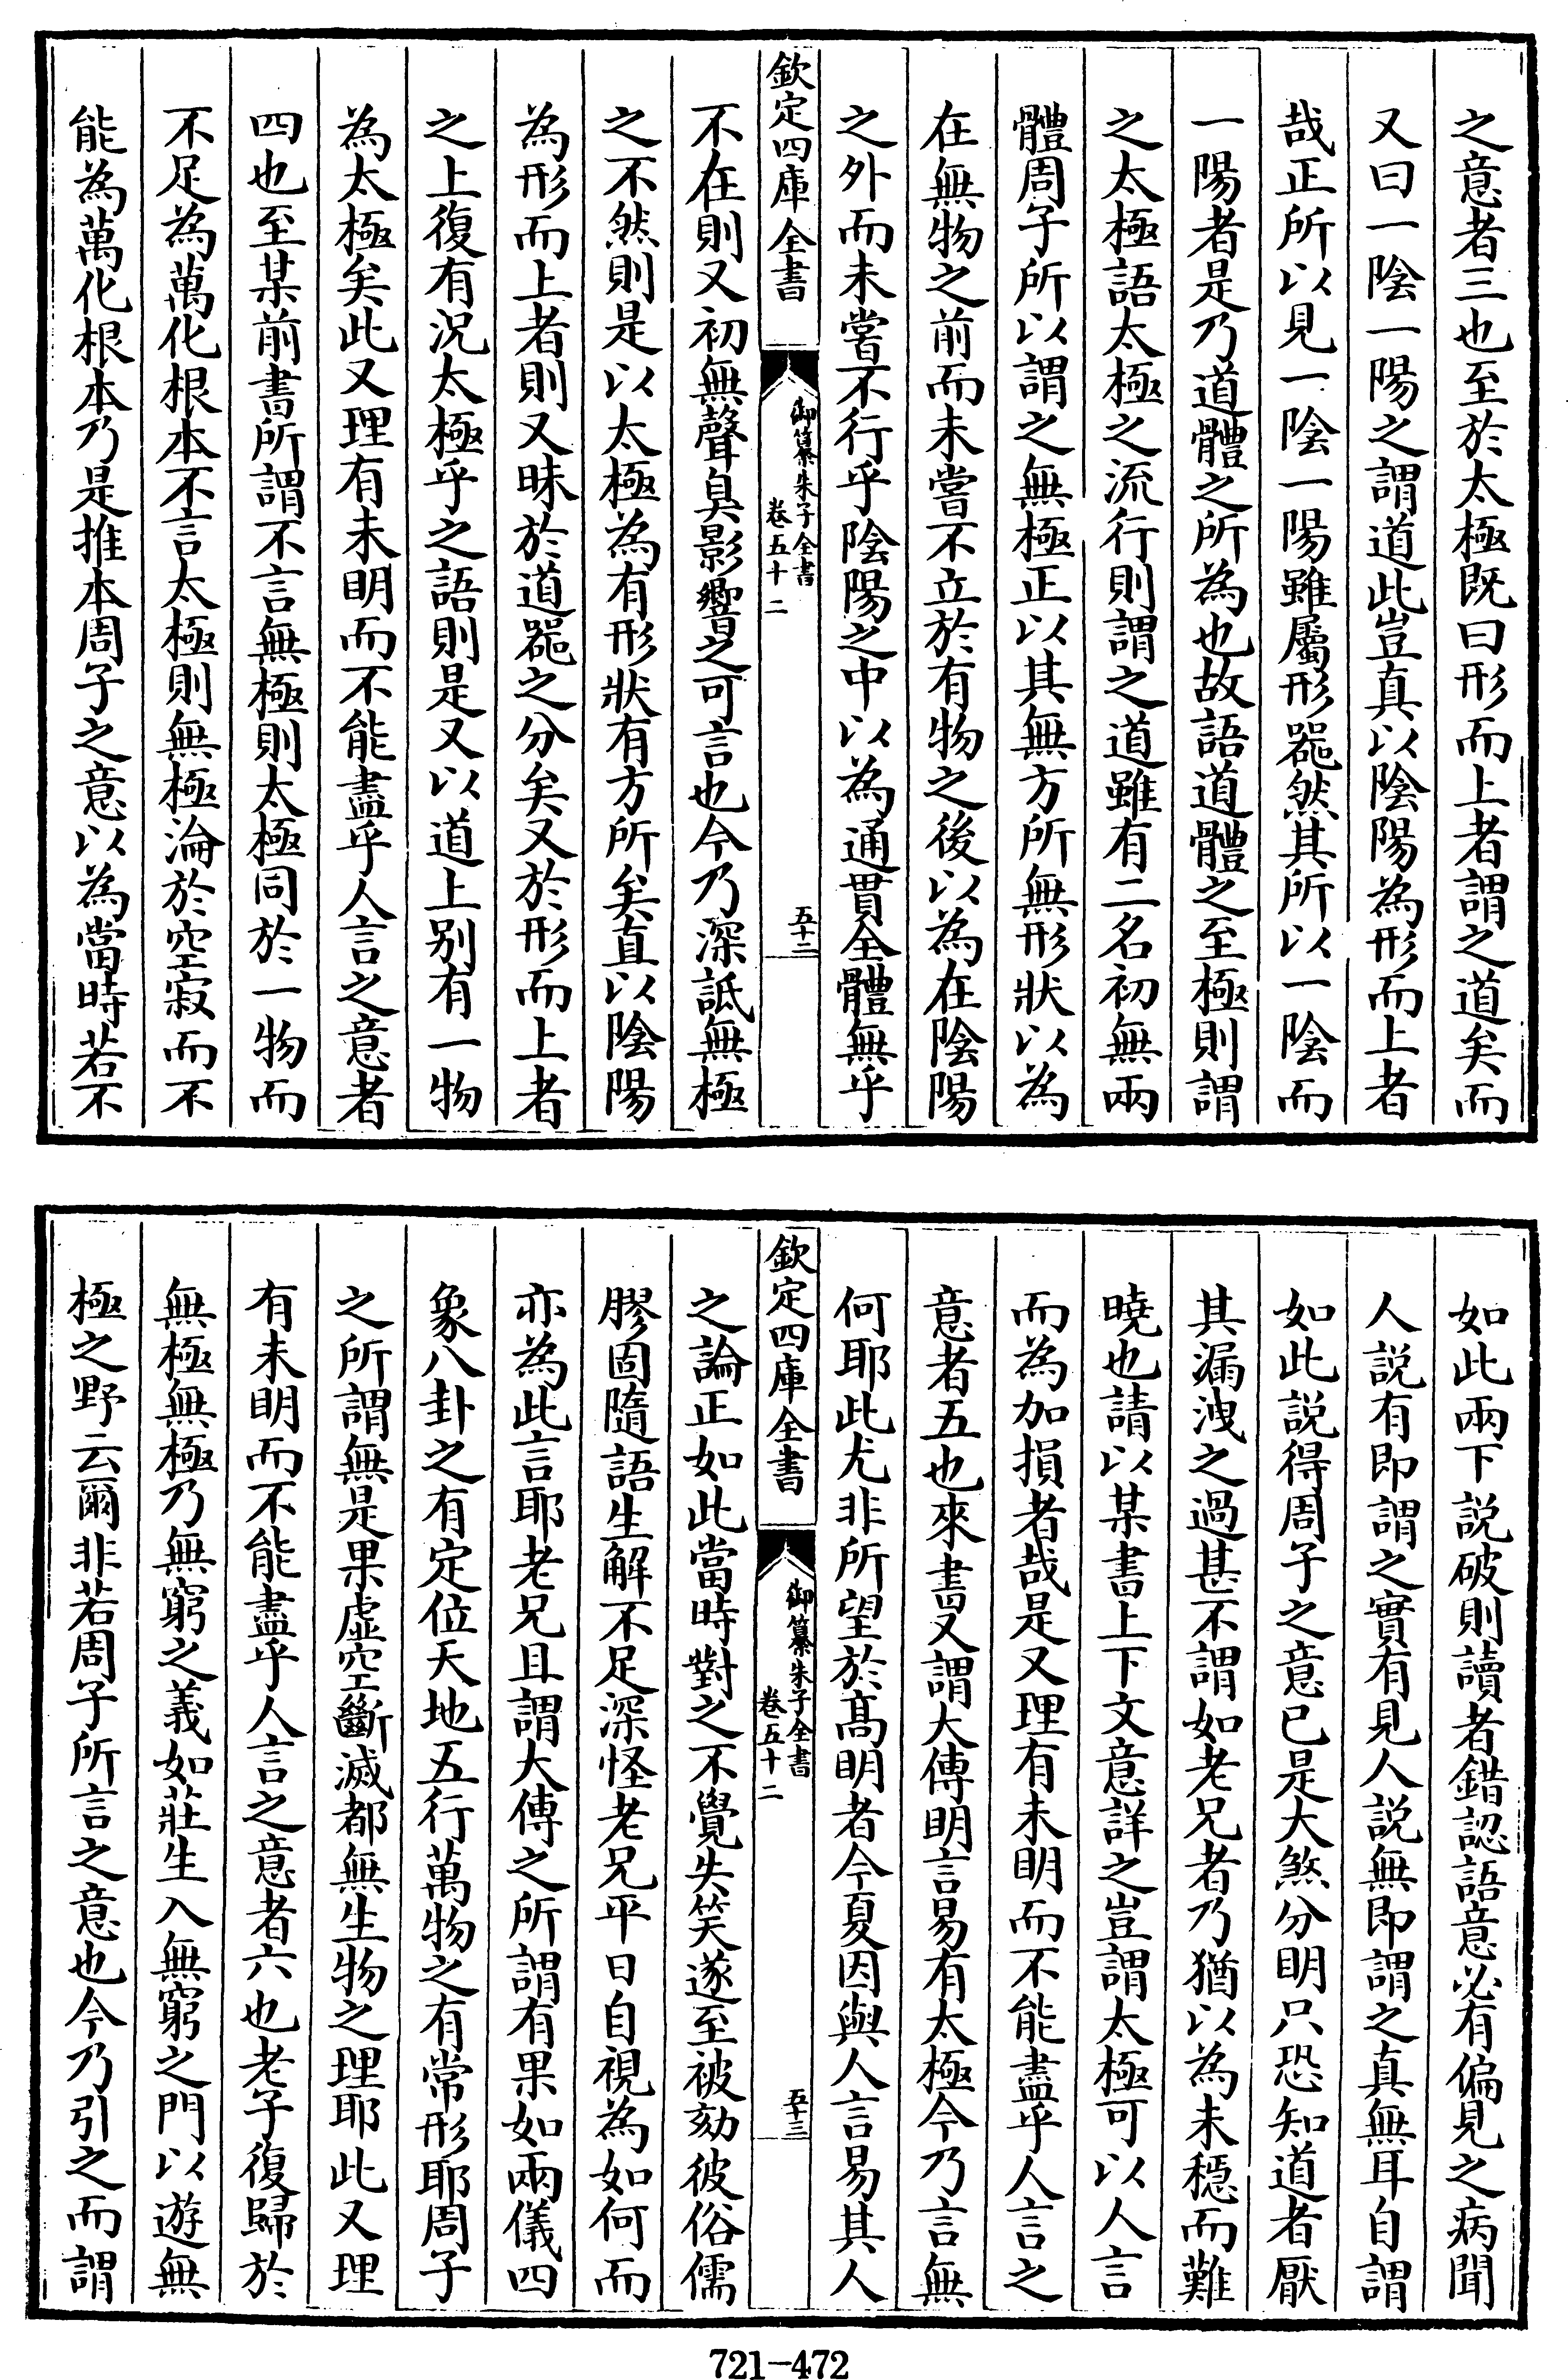 之意者三也至於太極既曰形而上者謂之道矣而
又曰一陰一陽之謂道此豈真以陰陽為形而上者
哉正所以見一陰一陽雖屬形器然其所以一陰而
一陽者是乃道體之所為也故語道體之至極則謂
之太極語太極之流行則謂之道雖有二名初無兩
體周子所以謂之無極正以其無方所無形狀以為
在無物之前而未嘗不立於有物之後以為在陰陽
之外而未嘗不行乎陰陽之中以為通貫全體無乎
欽定四庫全書
御纂朱子全書
卷五十二
五十二
不在則又初無聲臭影響之可言也今乃深詆無極
之不然則是以太極為有形狀有方所矣直以陰陽
為形而上者則又昧於道器之分矣又於形而上者
之上復有況太極乎之語則是又以道上别有一物
為太極矣此又理有未明而不能盡乎人言之意者
四也至某前書所謂不言無極則太極同於一物而
不足為萬化根本不言太極則無極淪於空寂而不
能為萬化根本乃是推本周子之意以為當時若不
如此兩下説破則讀者錯認語意必有偏見之病聞
人説有即謂之實有見人説無即謂之真無耳自謂
如此説得周子之意已是大煞分明只恐知道者厭
其漏洩之過甚不謂如老兄者乃猶以為未穏而難
曉也請以某書上下文意詳之豈謂太極可以人言
而為加損者哉是又理有未明而不能盡乎人言之
意者五也來書又謂大傳明言易有太極今乃言無
何耶此尤非所望於髙明者今夏因與人言易其人
欽定四庫全書
御纂朱子全書
卷五十二
五十三
之論正如此當時對之不覺失笑遂至被劾彼俗儒
膠固隨語生解不足深怪老兄平日自視為如何而
亦為此言耶老兄且謂大傳之所謂有果如兩儀四
象八卦之有定位天地五行萬物之有常形耶周子
之所謂無是果虛空斷滅都無生物之理耶此又理
有未明而不能盡乎人言之意者六也老子復歸於
無極無極乃無窮之義如莊生入無窮之門以遊無
極之野云爾非若周子所言之意也今乃引之而謂
721-472